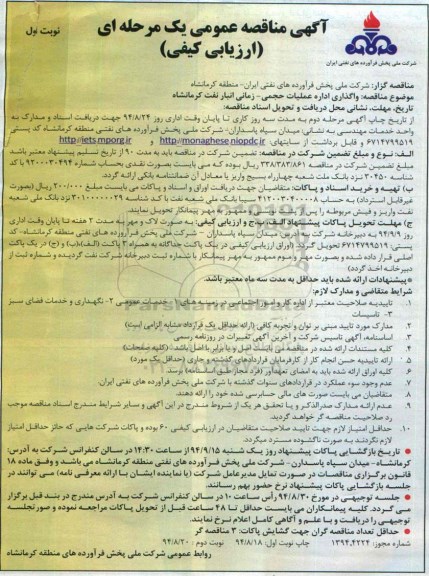 آگهی مناقصه عمومی یک مرحله ای
(ارزیابی کیفی)
نوبت اول
شرکت ملی پخش فرآورده های نفتی ایران
مناقصه گزار: شرکت ملی پخش فرآورده های نفتی ایران- منطقه کرمانشاه
موضوع مناقصه: واگذاری اداره عملیات حجمی- زمانی انبار نفت کرمانشاه
تاریخ، مهلت، نشانی محل دریافت و تحویل اسناد مناقصه:
از تاریخ چاپ آگهی مرحله دوم به مدت سه روز کاری تا پایان وقت اداری روز ۹۴/۸/۲۴ جهت دریافت اسناد و مدارک به
واحد خدمات مهندسی به نشانی: میدان سپاه پاسداران- شرکت ملی پخش فرآورده های نفتی منطقه کرمانشاه کد پستی
۶۷۱۴۷۹۹۵۱۹ و قابل برداشت از سایتهای: http://monaghese.niopdc.ir و http://iets.mporg.ir
الف: نوع و مبلغ تضمین شرکت در مناقصه: تضمین شرکت در مناقصه باید به مدت ۹۰ از تاریخ تسلیم پیشنهاد معتبر باشد
مبلغ تضمین شرکت در مناقصه ۳۳۸/۳۸۳/۸۶۱ ریال بوده که می بایست بصورت نقدی بحساب شماره ۹۲۰۰۰۳۰۴۹۴ با کد
شناسه ۳۰۴۵۰ نزد بانک ملت شعبه چهارراه بسیج واریز یا معادل آن ضمانتنامه بانکی ارائه گردد.
ب) تهیه و خرید اسناد و پاکات: متقاضیان جهت دریافت اوراق و اسناد و پاکات می بایست مبلغ ۲۰۰/۰۰۰ ریال (بصورت
غیرقابل استرداد) به حساب ۴۱۲۰۰۳۰۴۰۰۰۸ نزد بانک ملی شعبه نفت با کد شناسه ۳۰۱۰۰۰۰۰۲۹ نزد بانک ملی شعبه
نفت واریز و فیش مربوطه را پس از
ج) مهلت تحویل پاکات پیشنهاد الف، ب، ج و ارزیابی کیفی: به صورت لاک و مهر به مدت ۲ هفته تا پایان وقت اداری
روز ۹۴/۹/۹ به دبیرخانه شرکت به آدرس میدان سپاه پاسداران - شرکت ملی پخش فرآورده های نفتی منطقه کرمانشاه- کد
پستی: ۶۷۱۴۷۹۹۵۱۹ تحویل گردد (اوراق ارزیابی کیفی در یک پاکت جداگانه به همراه ۳ پاکت (الف)،(ب) و (ج) در یک پاکت
اصلی قرار داده شده و بصورت مهر و موم ممهور به مهر پیمانکار با شماره ثبت دبیرخانه شرکت نفت گردیده و شماره ثبت از
دبیرخانه اخذ گردد)
*پیشنهادات ارائه شده باید حداقل به مدت سه ماه معتبر باشد.
شرایط متقاضی و مدارک لازم:
۱. تاییدیه صلاحیت معتبر از اداره کار و امور اجتماعی در زمینه های ۱- خدمات عمومی ۲- نگهداری و خدمات فضای سبز
۳- تاسیسات
۲. مدارک مورد تایید مبنی بر توان و تجربه کافی (ارائه حداقل یک قرارداد مشابه الزامی است)
۳. اساسنامه، آگهی تاسیس شرکت و آخرین آگهی تغییرات در روزنامه رسمی
۴. کلیه مستندات ارائه شده در مناقصه می بایست اصل و یا برابر با اصل باشد. (کلیه صفحات)
۵. ارائه تاییدیه حسن انجام کار از کارفرمایان قراردادهای گذشته و جاری (حداقل یک مورد)
۶. کلیه اوراق ارائه شده باید به امضای تعهدآور (فرد مجاز طبق اساسنامه) برسد.
۷. عدم وجود سوء عملکرد در قراردادهای سنوات گذشته با شرکت ملی پخش فرآورده های نفتی ایران
۸. متقاضیان می بایست صورت های مالی حسابرسی شده خود را ارائه دهند.
۹. عدم ارائه مدارک صدرالذکر و یا تحقق هر یک از شروط مندرج در این آگهی و سایر شرایط مندرج اسناد مناقصه موجب
رد صلاحیت مناقصه گر خواهد گردید.
۱۰. حداقل امتیاز لازم جهت تایید صلاحیت متقاضیان در ارزیابی کیفی ۶۰ بوده و پاکات شرکت هایی که حائز حداقل امتیاز
لازم نگردند به صورت ناگشوده مسترد میگردد.
● تاریخ بازگشایی پاکات پیشنهاد روز یک شنبه ۹۴/۹/۱۵ از ساعت ۱۴:۳۰ در سالن کنفرانس شرکت به آدرس:
کرمانشاه- میدان سپاه پاسداران- شرکت ملی پخش فرآورده های نفتی منطقه کرمانشاه می باشد و وفق ماده ۱۸
قانون برگزاری مناقصات در صورت تمایل مدیرعامل شرکت (یا نماینده ایشان با ارائه معرفی نامه) می توانند در
جلسه بازگشایی پاکات پیشنهاد نرخ حضور بهم رسانند.
● جلسه توجیهی در مورخ ۹۴/۸/۳۰ رأس ساعت ۱۰ در سالن کنفرانس شرکت به آدرس مندرج در بند قبل برگزار
می گردد. کلیه پیمانکاران می بایست حداقل تا ۴۸ ساعت قبل از تحویل پاکات مراجعه نموده و صورتجلسه
توجیهی را دریافت و با علم و آگاهی کامل اعلام نرخ نمایند.
● حداقل تعداد مناقصه گران جهت گشایش پاکات: ۳ مناقصه گر
شماره مجوز: ۱۳۹۴،۴۲۲۴ چاپ نوبت اول: ۹۴/۸/۱۸ نوبت دوم: ۹۴/۸/۲۰
روابط عمومی شرکت ملی پخش فرآورده های نفتی منطقه کرمانشاه